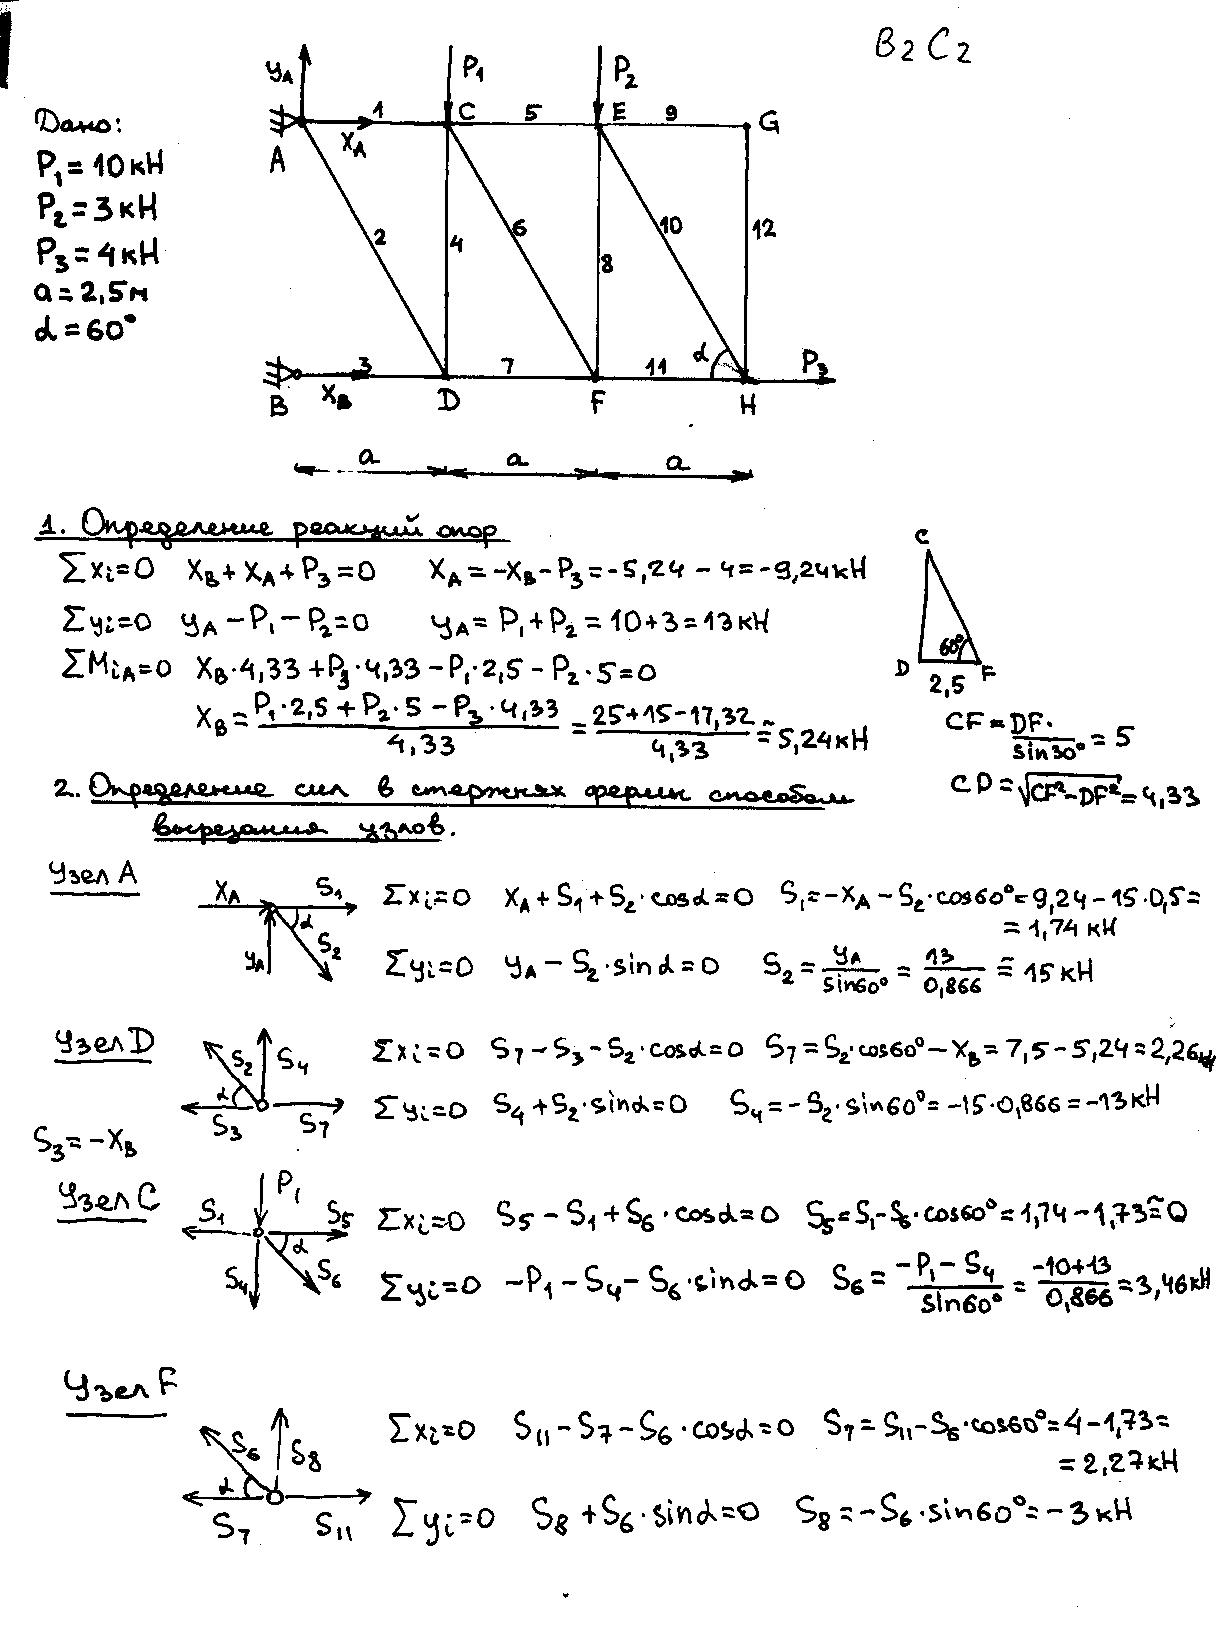 B2C2
yA P1 P2
Дано:
P1=10кН
P2=3кН
P3=4кН
a=2,5м
α=60°
1 C 5 E 9 G
A XA
2 4 6 8 10 12
3 7 11 α P3
B XB D F H
a a a
1. Определение реакций опор
Σxi=0 XB+XA+P3=0 XA=-XB-P3=-5,24-4=-9,24кН
Σyi=0 yA-P1-P2=0 yA=P1+P2=10+3=13кН
ΣMiA=0 XB·4,33+P3·4,33-P1·2,5-P2·5=0
XB=(P1·2,5+P2·5-P3·4,33)/4,33=(25+15-17,32)/4,33≅5,24кН
C
60°
D F
2,5
CF=DF·/sin30°=5
CD=√(CF²-DF²)=4,33
2. Определение сил в стержнях фермы способом
вырезания узлов.
Узел A
XA S1 α S2 yA
Σxi=0 XA+S1+S2·cosα=0 S1=-XA-S2·cos60°=9,24-15·0,5=
=1,74кН
Σyi=0 yA-S2·sinα=0 S2=yA/sin60°=13/0,866≅15кН
Узел D
S2 S4 α S3 S7
Σxi=0 S7-S3-S2·cosα=0 S7=S2·cos60°-XB=7,5-5,24=2,26кН
Σyi=0 S4+S2·sinα=0 S4=-S2·sin60°=-15·0,866=-13кН
S3=-XB
Узел C
P1 S1 S5 α S4 S6
Σxi=0 S5-S1+S6·cosα=0 S5=S1-S6·cos60°=1,74-1,73≅0
Σyi=0 -P1-S4-S6·sinα=0 S6=(-P1-S4)/sin60°=(-10+13)/0,866=3,46кН
Узел F
S6 S8 α S7 S11
Σxi=0 S11-S7-S6·cosα=0 S7=S11-S6·cos60°=4-1,73=
=2,27кН
Σyi=0 S8+S6·sinα=0 S8=-S6·sin60°=-3кН